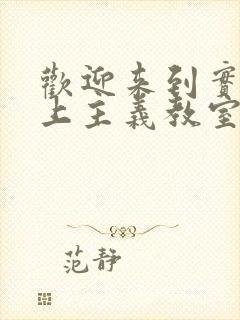 歡迎來到實
上主義教室
范靜